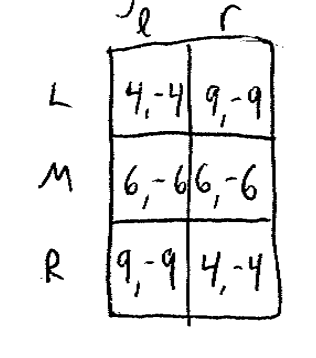 l r
L 4,-4 9,-9
M 6,-6 6,-6
R 9,-9 4,-4